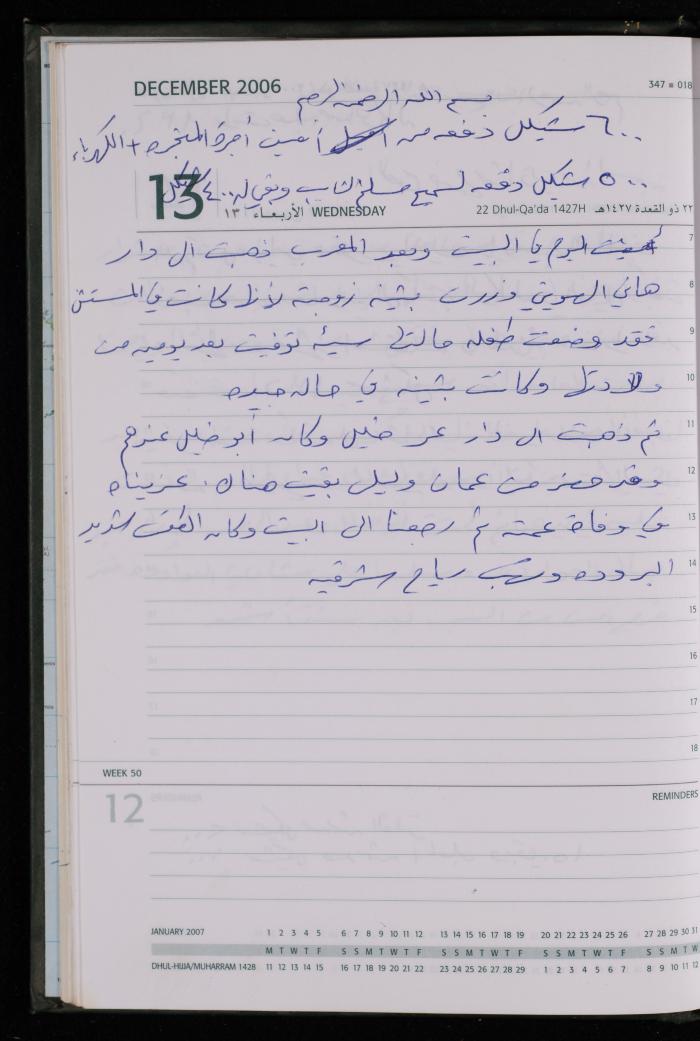 DECEMBER 2006
347 ■ 018
بسم الله الرحمن الرحيم
٦٠٠ شيكل دفعه من أمين أجرة المنجره + الكهرباء
٥٠٠ شيكل دفعه لسميح مسلم الشايب وبقي له ٤٠٠ شيكل
13
١٣ الأربعاء WEDNESDAY
22 Dhul-Qa'da 1427H ٢٢ ذو القعدة ١٤٢٧هـ
7
أمضيت اليوم في البيت وبعد المغرب ذهبت الى دار
8
هاني وزرت بثينه زوجته لأنها كانت في المستشفى
9
فقد وضعت طفله حالتها سيئه توفيت بعد يومين من
10
ولادتها وكانت بثينه في حاله جيده
11
ثم ذهبت الى دار عمر خليل وكان أبو خليل عندهم
12
وقد حضر من عمان وليلى بقيت هناك، عزيناه
13
في وفاة عمته ثم رجعنا الى البيت وكان الطقس شديد
14
البروده وتهب رياح شرقيه
15
16
17
18
WEEK 50
12
REMINDERS
JANUARY 2007 1 2 3 4 5 6 7 8 9 10 11 12 13 14 15 16 17 18 19 20 21 22 23 24 25 26 27 28 29 30 31
M T W T F S S M T W T F S S M T W T F S S M T W T F S S M T W
DHUL-HIJJA/MUHARRAM 1428 11 12 13 14 15 16 17 18 19 20 21 22 23 24 25 26 27 28 29 1 2 3 4 5 6 7 8 9 10 11 12